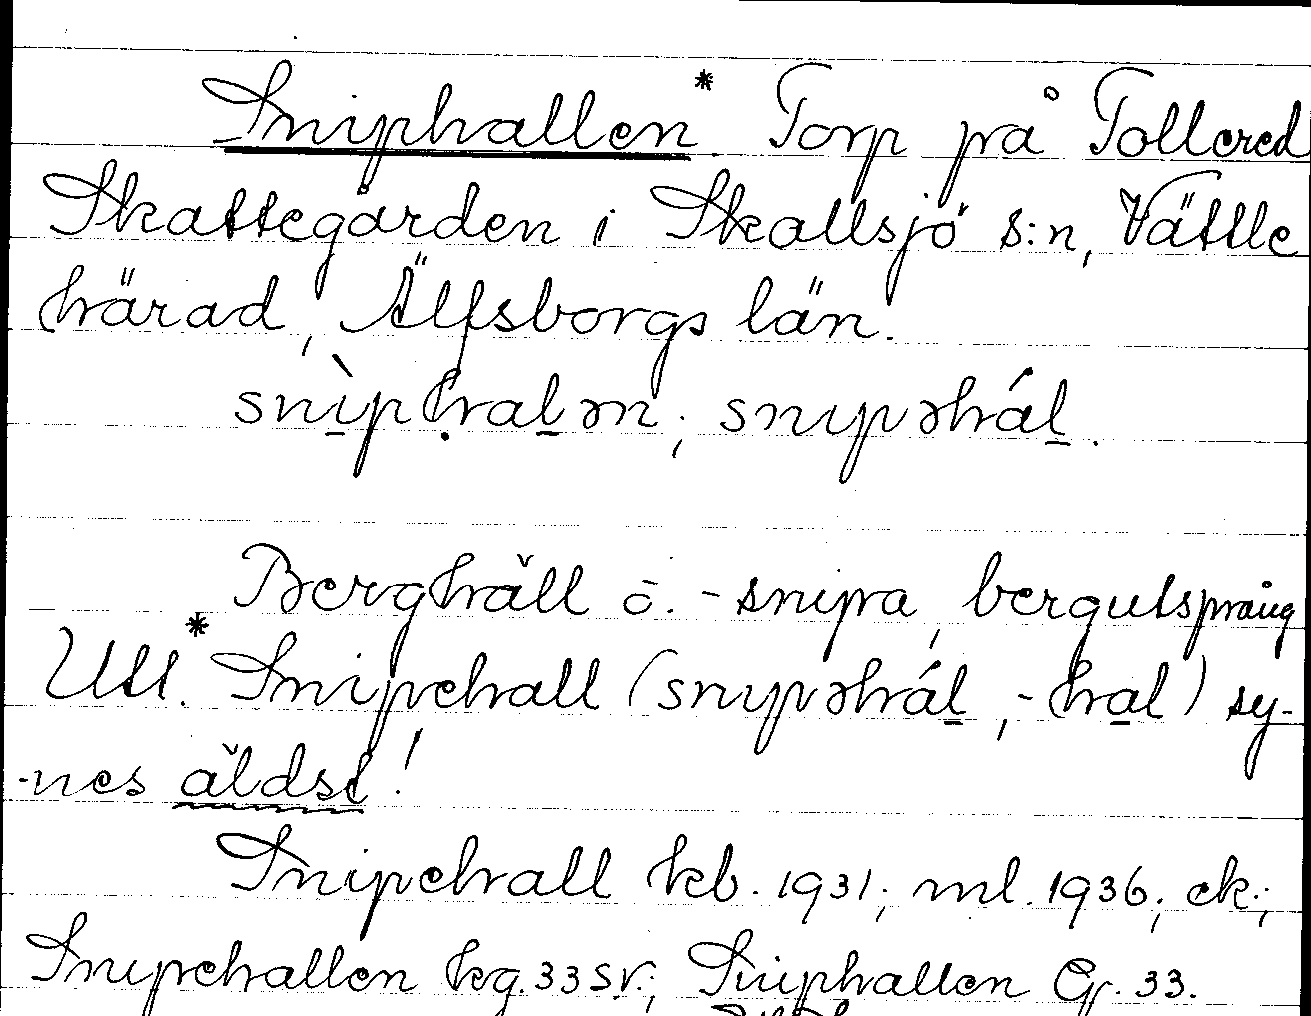 Sniphallen* Torp på Tollered
Skattegården i Skallsjö s:n, Vättle
härad, Älfsborgs län.
snìphalən; snipəhál.
Berghäll ö. -snipa, bergutspräng
Utt.* Snipehall (snipəhál, -hal) sy-
-nes äldst!
Snipehall kb. 1931; ml. 1936; ek.;
Snipehallen hg. 33 sv.; Sniphallen Gr. 33.